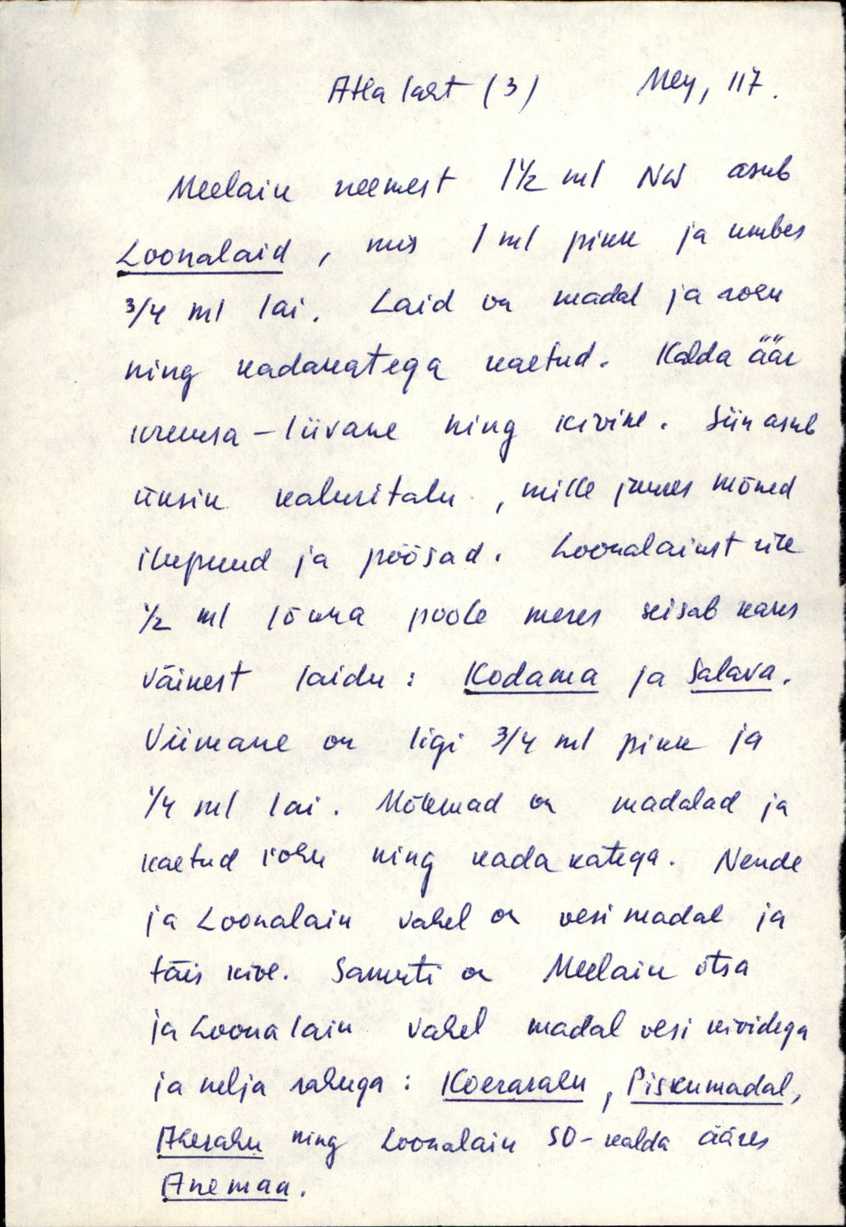 Atla laht (3) Mey, 117.
Meelaiu neemest 1½ ml NW asub
Loonalaid, mis 1 ml pikk ja umbes
3/4 ml lai. Laid on madal ja rohu
ning kadakatega kaetud. Kalda äär
kruusa-liivane ning kivine. Siin asub
üksik kaluritalu, mille juures mõned
ilupuud ja põõsad. Loonalaiust üle
½ ml lõuna poole meres seisab kaks
väikest laidu: Kodama ja Salava.
Viimane on ligi 3/4 ml pikk ja
1/4 ml lai. Mõlemad on madalad ja
kaetud rohu ning kadakatega. Nende
ja Loonalaiu vahel on vesi madal ja
täis kive. Samuti on Meelaiu otsa
ja Loonalaiu vahel madal vesi kividega
ja nelja rahuga: Koerarahu, Piskumadal,
Aherahu ning Loonalaiu SO-kalda ääres
Anemaa.